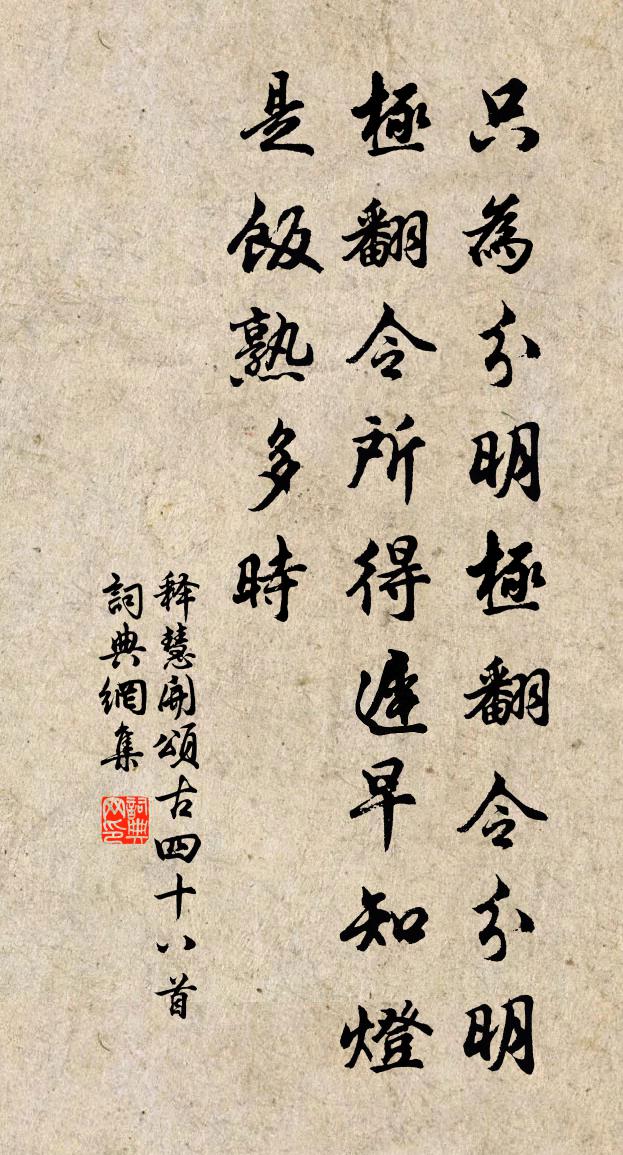 只為分明極翻令分明
極翻令所得遲早知燈
是飯熟多時
释慧開頌古四十八首
詞典網集
詞典網印